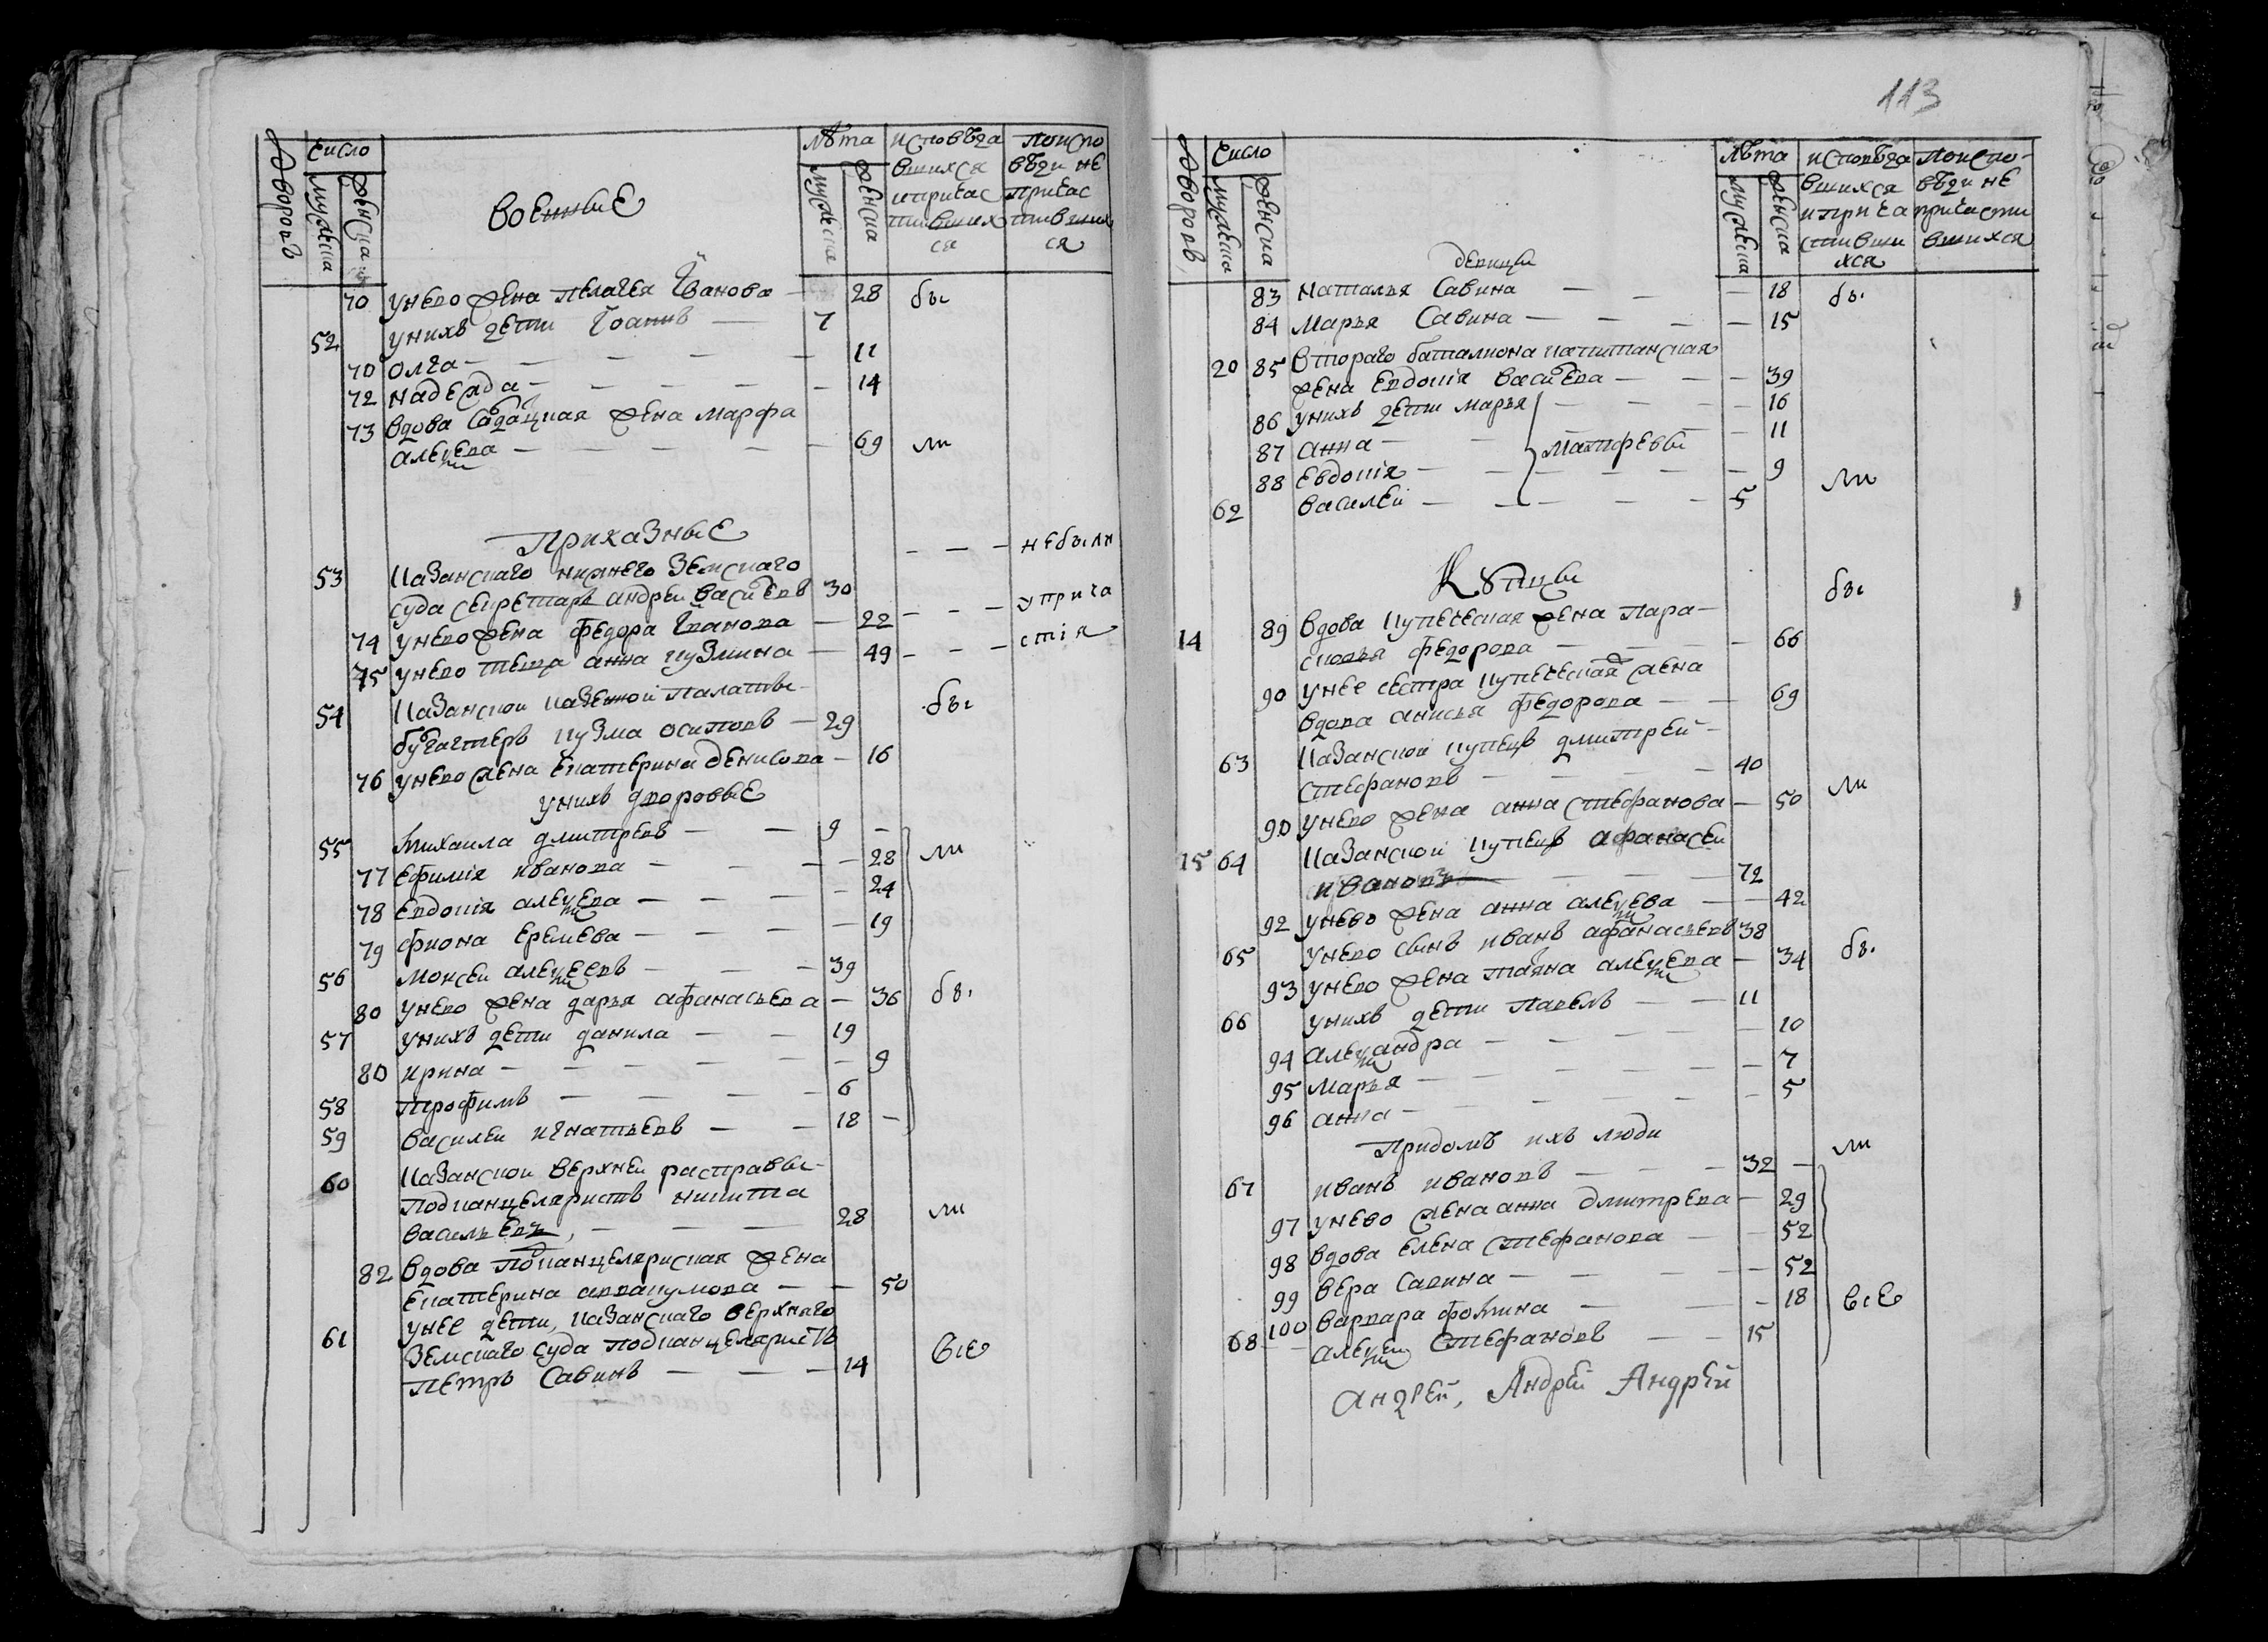 113
дворовъ
число
мужеска
женска
военные
лѣта
мужеска
женска
исповѣда
вшихся
ипричас
тившихъ
ся
поиспо
вѣди не
причас
тивших
ся
70 унево жена пелагея Иванова — 28 бы
52 унихъ дети Иоаннъ — 7
70 олга — 11
72 надежда — 14
73 вдова солдацкая жена марфа
алекеева — 69 ли
приказные
небыли
53 казанскаго нижнего земскаго
суда секретарь андреи васильевъ 30
74 унево жена федора Иванова — 22 — — — уприча
75 унево теща анна кузмина — 49 — — — стія
54 казанскои казенной палаты
бугалтеръ кузма осиповъ — 29 бы
76 унево жена екатерина денисова — 16
унихъ дворовые
55 михаила дмитревъ — 9 —
77 ефимія иванова — 28 ли
78 евдокія алекеева — 24
79 фиона еремеева — 19
56 моисеи алекеевъ — 39
80 унево жена дарья афанасьева — 36 бы
57 унихъ дети данила — 19
80 ирина — 9
58 трофимъ — 6
59 василеи игнатьевъ — 18 —
60 казанскои верхнеи расправы
подканцеляристъ никита
васильевъ, — 28 ли
82 вдова подканцеляриская жена
екатерина аввакумова — 50
61 унее дети, казанскаго верхняго
земскаго суда подканцеляристъ
петръ Савинъ — 14 все
дворовъ
число
мужеска
женска
лѣта
мужеска
женска
исповѣда
вшихся
иприча
стивши
хся
поиспо-
вѣди не
причасти
вшихся
девицы
83 наталья Савина — 18 бы
84 Марья Савина — 15
20 85 втораго баталиона капитанская
жена евдокія васильева — 39
86 унихъ дети марья — 16
87 анна — матфевы — 11
88 евдокія — 9
62 василеи — 5 ли
Купцы
бы
14 89 вдова купеческая жена пара-
сковья федорова — 66
90 унее сестра купеческая жена
вдова анисья федорова — 69
63 казанскои купецъ дмитреи
стефановъ — 40
90 унево жена анна стефанова — 50 ли
15 64 казанскои купецъ афанасеи
ивановъ — 72
92 унево жена анна алекеева — 42
65 унево сынъ иванъ афанасьевъ 38
93 унево жена татьяна алекеева — 34 бы
66 унихъ дети павелъ — 11
94 александра — 10
95 марья — 7
96 анна — 5
придомъ ихъ люди
67 иванъ ивановъ — 32 — ли
97 унево жена анна дмитрева — 29
98 вдова елена стефанова — 52
99 вера савина — 52
100 варвара фомина — 18 все
68 алекеи стефановъ — 15
андреи, Андрей Андрей